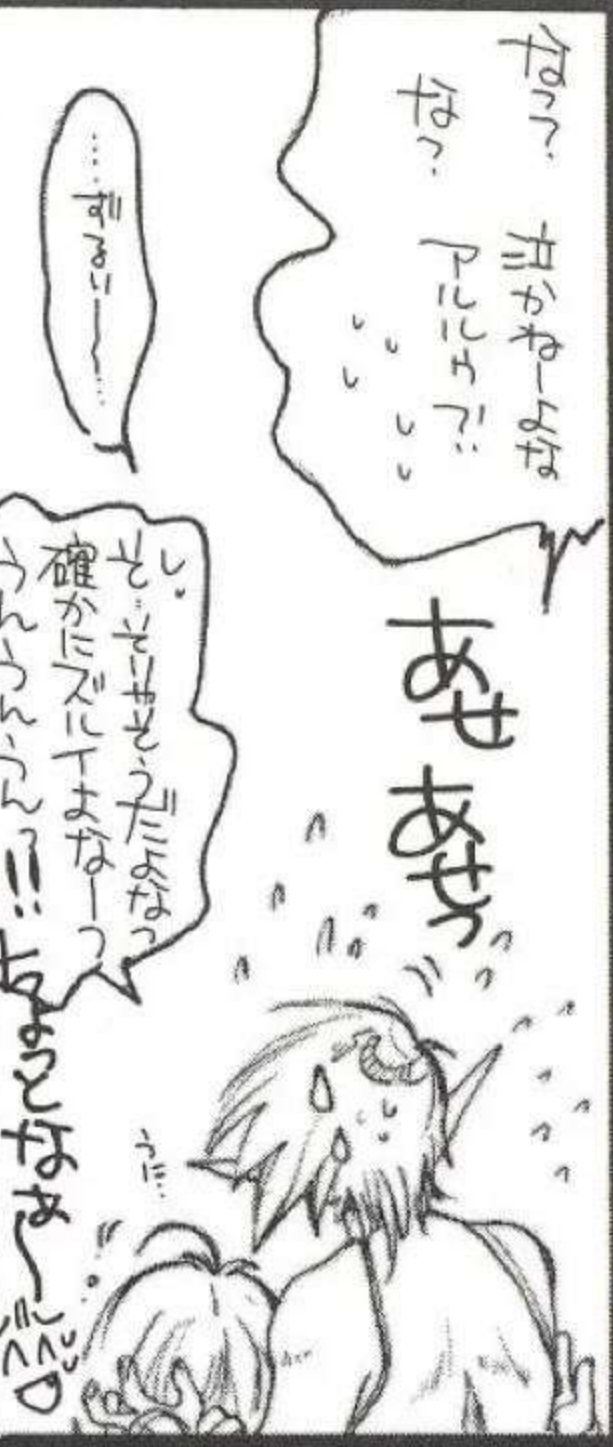 なっ? 泣かねーよな
なっ? アルル
あせ
あせっ
……ずるい〜……
し、
そ…そりゃそうだよなっ
確かにズルイよなーっ
うんうんうんっ!!
ちょっとなぁ〜